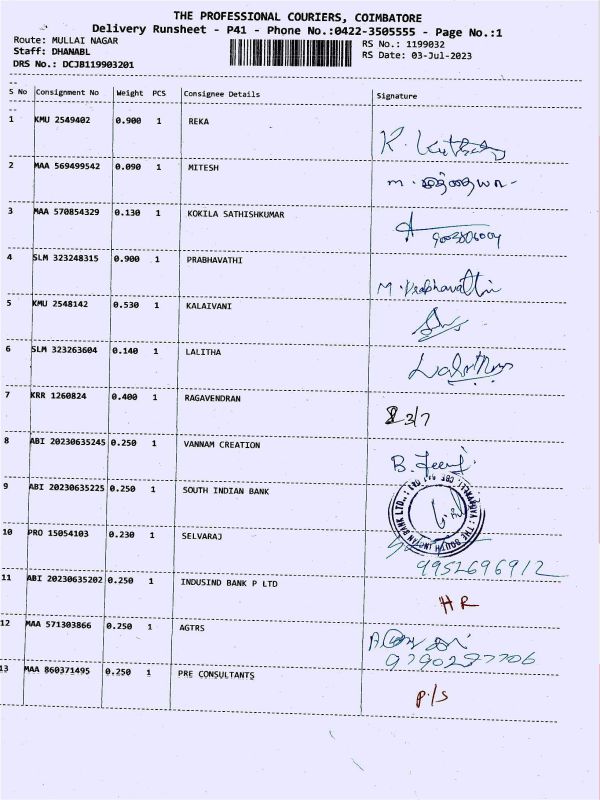 THE PROFESSIONAL COURIERS, COIMBATORE
Delivery Runsheet - P41 - Phone No.:0422-3505555 - Page No.:1
Route: MULLAI NAGAR RS No.: 1199032
Staff: DHANABL RS Date: 03-Jul-2023
DRS No.: DCJB119903201
S No Consignment No Weight PCS Consignee Details Signature
1 KMU 2549402 0.900 1 REKA
K.
2 MAA 569499542 0.090 1 MITESH
m.
3 MAA 570854329 0.130 1 KOKILA SATHISHKUMAR
4 SLM 323248315 0.900 1 PRABHAVATHI
M. Prabhavathi
5 KMU 2548142 0.530 1 KALAIVANI
6 SLM 323263604 0.140 1 LALITHA
7 KRR 1260824 0.400 1 RAGAVENDRAN
3/7
8 ABI 20230635245 0.250 1 VANNAM CREATION
B.
9 ABI 20230635225 0.250 1 SOUTH INDIAN BANK
THE SOUTH INDIAN BANK LTD.
10 PRO 15054103 0.230 1 SELVARAJ
9952696912
11 ABI 20230635202 0.250 1 INDUSIND BANK P LTD
HR
12 MAA 571303866 0.250 1 AGTRS
13 MAA 860371495 0.250 1 PRE CONSULTANTS
P/S